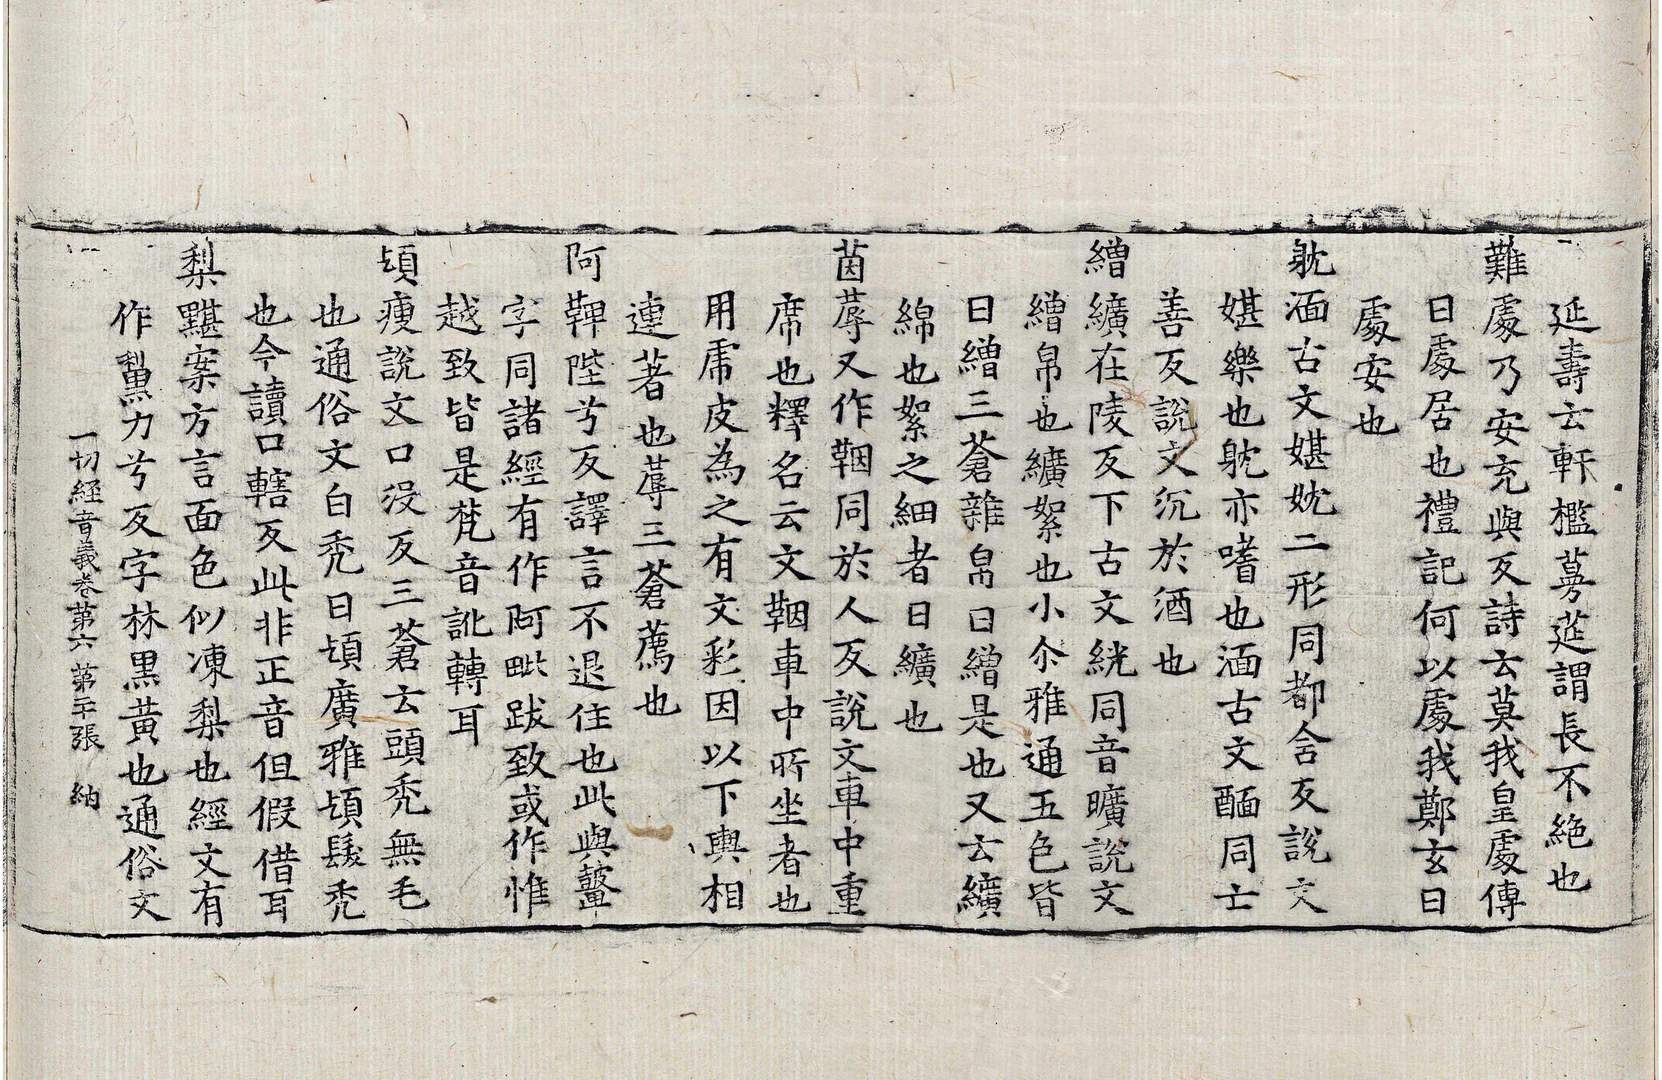 延壽云軒檻蔓莚謂長不絕也
難處乃安充與反詩云莫我皇處傳
曰處居也禮記何以處我鄭玄曰
處安也
躭湎古文媅妉二形同都含反說文
媅樂也躭亦嗜也湎古文醽同士
善反說文沉於酒也
繒纊在陵反下古文絖同音曠說文
繒帛也纊絮也小尒雅通五色皆
曰繒三蒼雜帛曰繒是也又云纊
綿也絮之細者曰纊也
茵蓐又作鞇同於人反說文車中重
席也釋名云文鞇車中所坐者也
用虎皮為之有文彩因以下輿相
連著也蓐三蒼薦也
阿鞞陛兮反譯言不退住也此與𤿎
字同諸經有作阿毗跋致或作惟
越致皆是梵音訛轉耳
頏瘦說文口沒反三蒼云頭禿無毛
也通俗文白禿曰頏廣雅頏鬝禿
也今讀口轄反此非正音但假借耳
梨黮案方言面色似凍梨也經文有
作黧力兮反字林黑黃也通俗文
一切經音義卷第六 第二十張 納